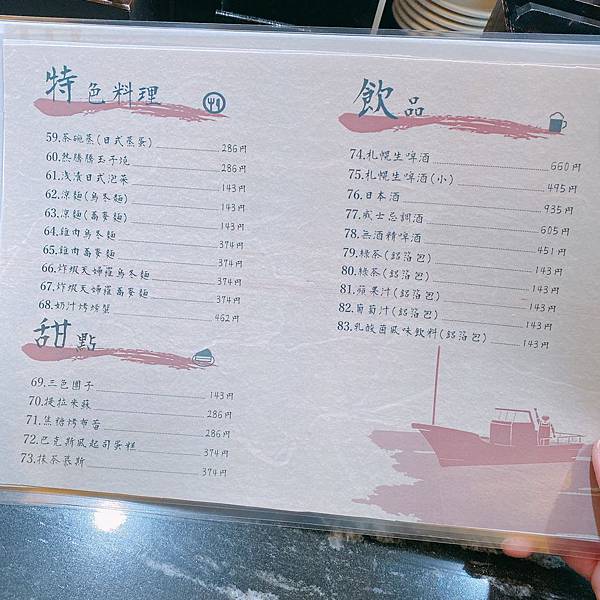 特色料理
59.茶碗蒸(日式蒸蛋) 286円
60.熱騰騰玉子燒 286円
61.淺漬日式泡菜 143円
62.涼麵(烏冬麵) 143円
63.涼麵(蕎麥麵) 143円
64.雞肉烏冬麵 374円
65.雞肉蕎麥麵 374円
66.炸蝦天婦羅烏冬麵 374円
67.炸蝦天婦羅蕎麥麵 374円
68.奶汁烤螃蟹 462円
甜點
69.三色團子 143円
70.提拉米蘇 286円
71.焦糖烤布蕾 286円
72.巴克斯風起司蛋糕 374円
73.抹茶慕斯 374円
飲品
74.札幌生啤酒 660円
75.札幌生啤酒(小) 495円
76.日本酒 935円
77.威士忌調酒 605円
78.無酒精啤酒 451円
79.綠茶(鋁箔包) 143円
80.綠茶(鋁箔包) 143円
81.蘋果汁(鋁箔包) 143円
82.葡萄汁(鋁箔包) 143円
83.乳酸菌風味飲料(鋁箔包) 143円